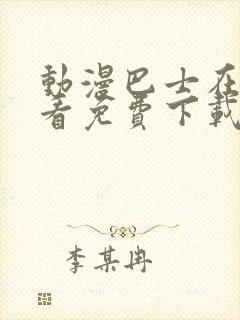 動漫巴士在
看免費下載
李某冉